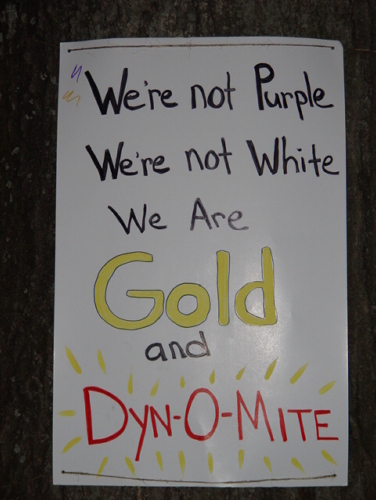 We're not Purple
We're not White
We Are
Gold
and
DYN-O-MITE